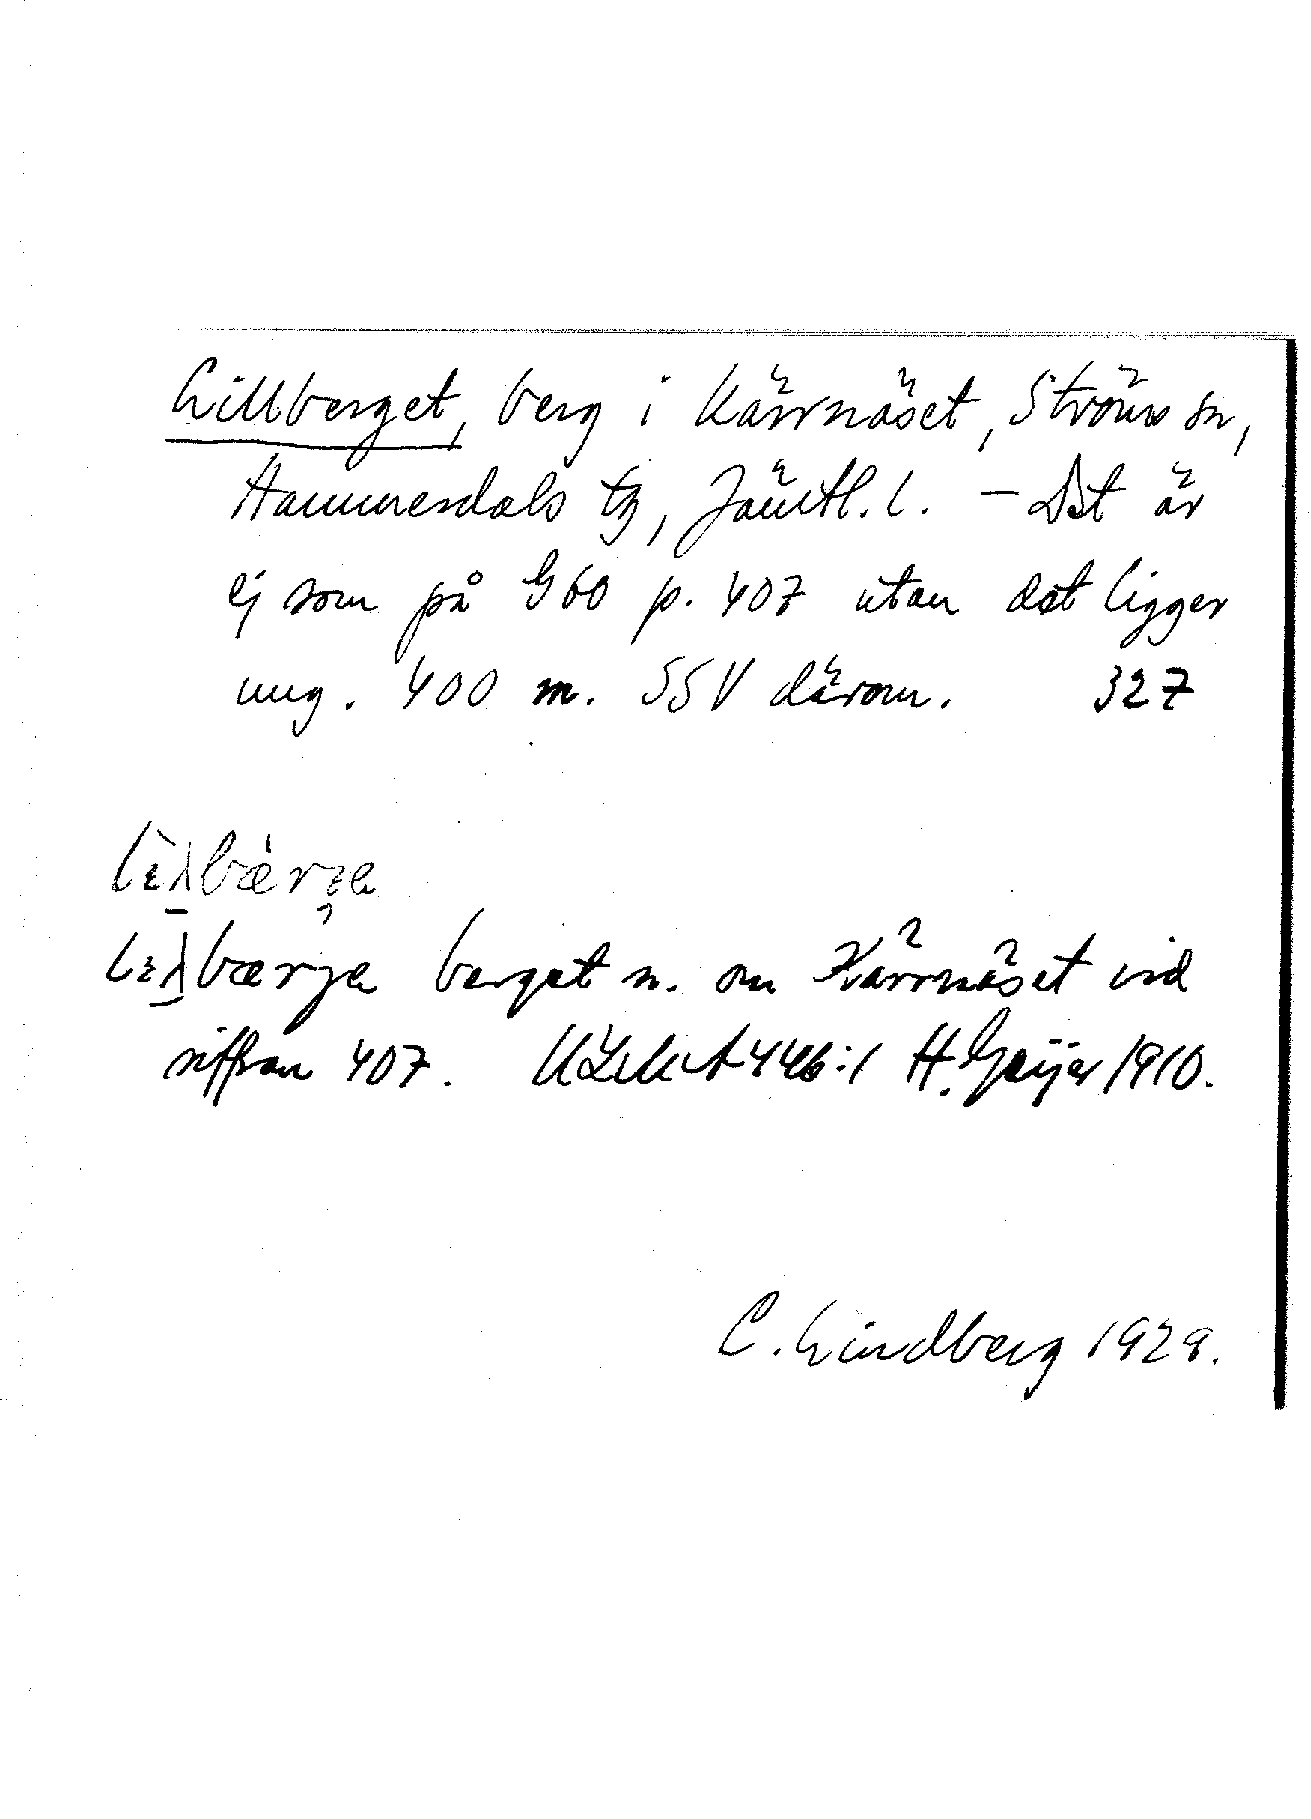 Lillberget, berg i Kärrnäset, Ströms sn,
Hammerdals tg, Jämtl. l. – Det är
ej som på G60 p. 407 utan det ligger
ung. 400 m. SSV därom. 327
berget n. om Kärrnäset vid
siffran 407. ULMA 446:1 H. Geijer 1910.
C. Lindberg 1929.